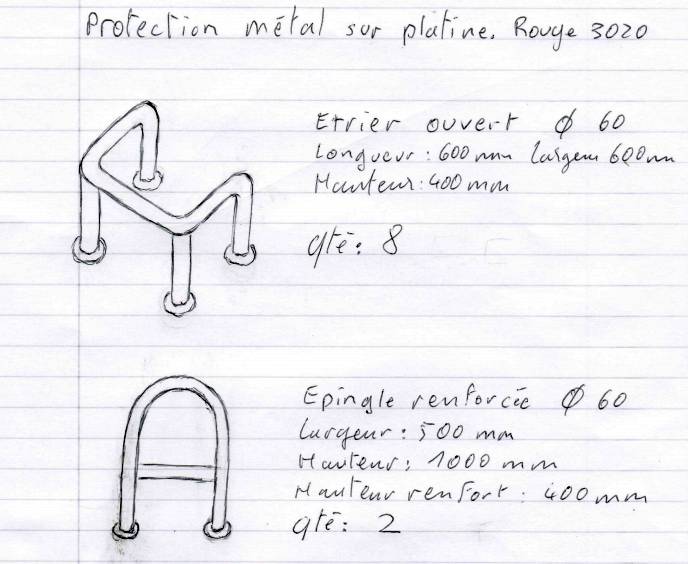 Protection métal sur platine. Rouge 3020
Etrier ouvert Ø 60
Longueur : 600 mm largeur 600 mm
Hauteur : 400 mm
qté : 8
Epingle renforcée Ø 60
Largeur : 500 mm
Hauteur : 1000 mm
Hauteur renfort : 400 mm
qté : 2